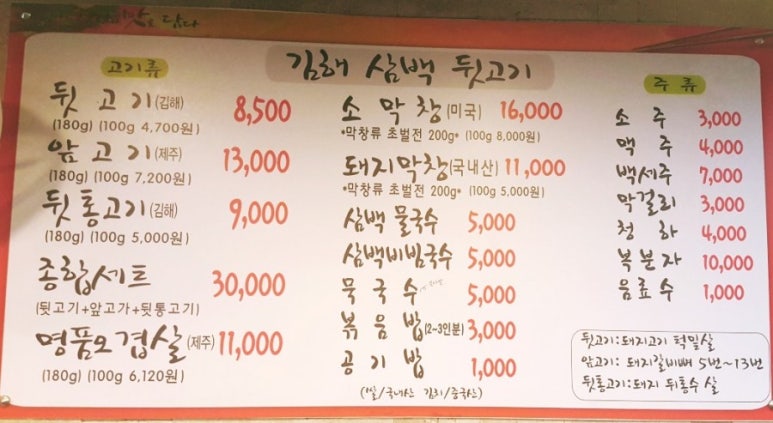 맛으로 담다
김해 삼백 뒷고기
고기류
뒷고기(김해) 8,500
(180g) (100g 4,700원)
앞고기(제주) 13,000
(180g) (100g 7,200원)
뒷통고기(김해) 9,000
(180g) (100g 5,000원)
종합세트 30,000
(뒷고기+앞고가+뒷통고기)
명품오겹살(제주) 11,000
(180g) (100g 6,120원)
소막창(미국) 16,000
*막창류 초벌전 200g* (100g 8,000원)
돼지막창(국내산) 11,000
*막창류 초벌전 200g* (100g 5,000원)
삼백물국수 5,000
삼백비빔국수 5,000
묵국수 5,000
볶음밥(2~3인분) 3,000
공기밥 1,000
(쌀/국내산 김치/중국산)
주류
소주 3,000
맥주 4,000
백세주 7,000
막걸리 3,000
청하 4,000
복분자 10,000
음료수 1,000
뒷고기:돼지고기 턱밑살
앞고기: 돼지갈비뼈 5번~13번
뒷통고기:돼지 뒤통수 살